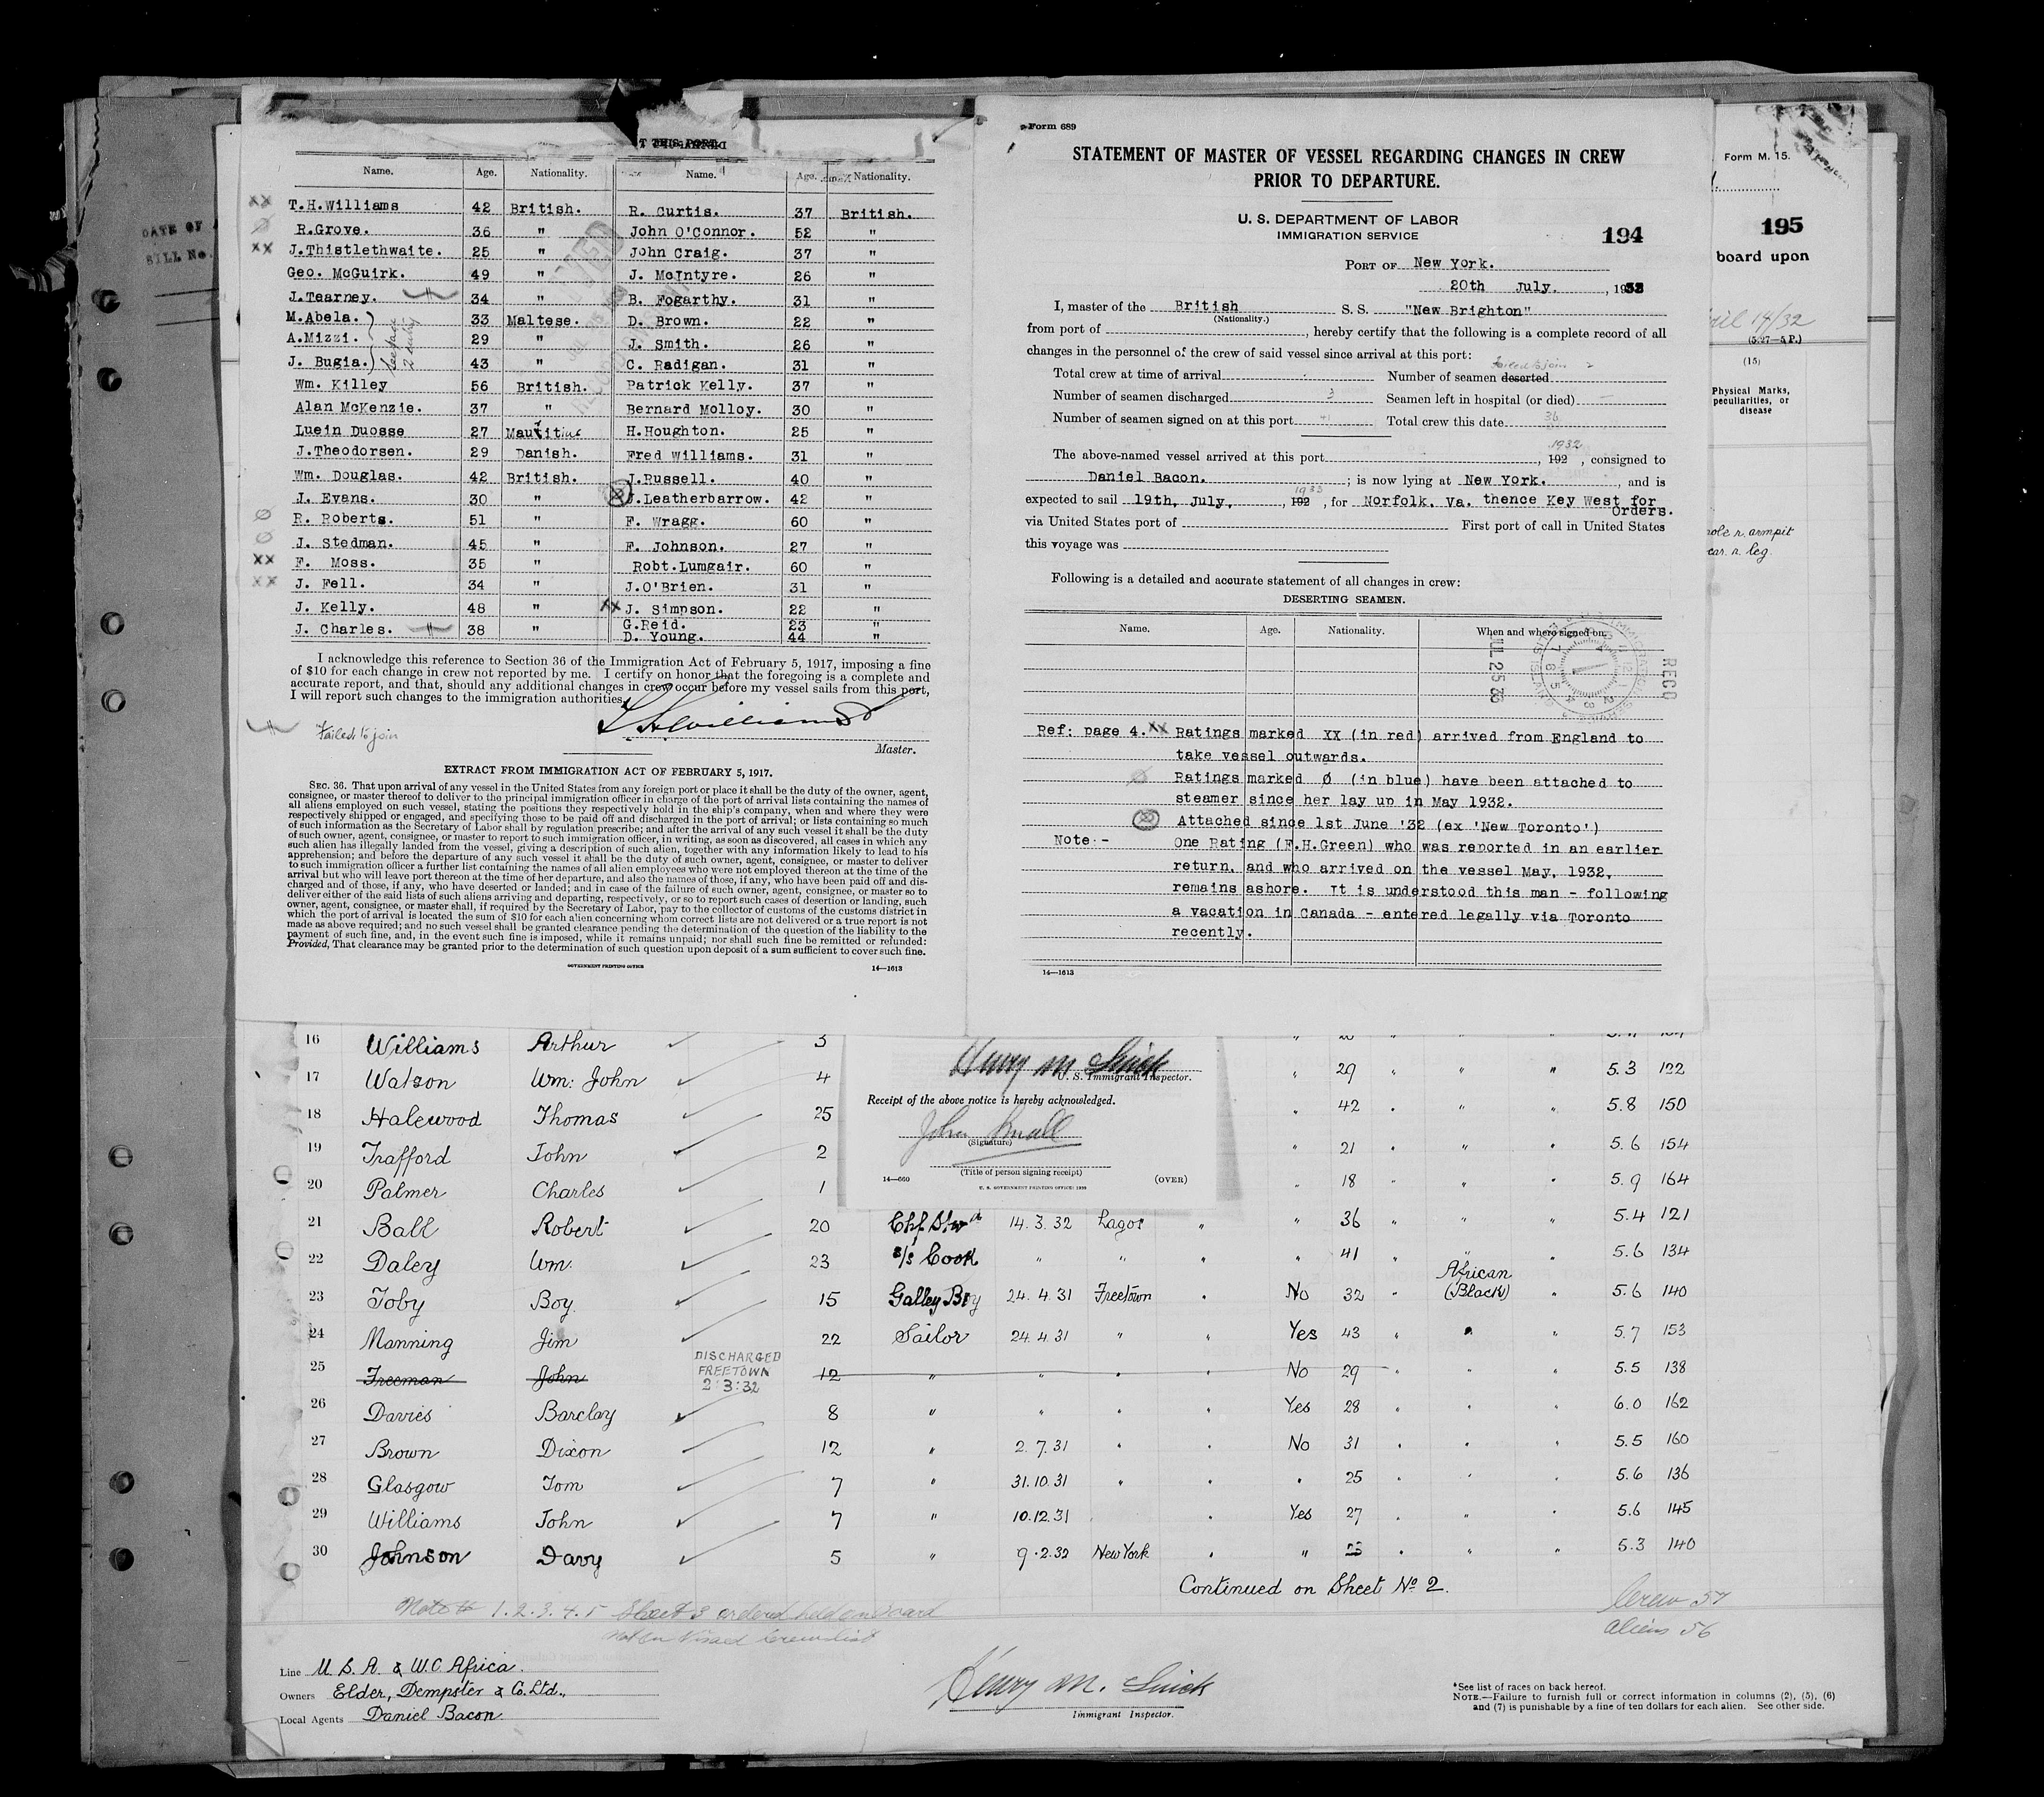 DATE OF
BILL No.
T THIS PORT
Name. Age. Nationality. Name. Age. Nationality.
XX T.H.Williams 42 British. R. Curtis. 37 British.
Ø R.Grove. 36 " John O'Connor. 52 "
XX J.Thistlethwaite. 25 " John Craig. 37 "
Geo. McGuirk. 49 " J. McIntyre. 26 "
J.Tearney. 34 " B. Fogarthy. 31 "
M.Abela. 33 Maltese. D. Brown. 22 "
A.Mizzi. 29 " J. Smith. 26 "
J. Bugia. 43 " C. Radigan. 31 "
Wm. Killey 56 British. Patrick Kelly. 37 "
Alan McKenzie. 37 " Bernard Molloy. 30 "
Luein Duosse 27 Mauritius H.Houghton. 25 "
J.Theodorsen. 29 Danish. Fred Williams. 31 "
Wm. Douglas. 42 British. J.Russell. 40 "
J. Evans. 30 " J.Leatherbarrow. 42 "
Ø R. Roberts. 51 " F. Wragg. 60 "
Ø J. Stedman. 45 " F. Johnson. 27 "
XX F. Moss. 35 " Robt.Lumgair. 60 "
XX J. Fell. 34 " J.O'Brien. 31 "
J. Kelly. 48 " XX J. Simpson. 22 "
J. Charles. 38 " G.Reid. 23 "
D. Young. 44 "
I acknowledge this reference to Section 36 of the Immigration Act of February 5, 1917, imposing a fine
of $10 for each change in crew not reported by me. I certify on honor that the foregoing is a complete and
accurate report, and that, should any additional changes in crew occur before my vessel sails from this port,
I will report such changes to the immigration authorities.
T H Williams
Failed to join
Master.
EXTRACT FROM IMMIGRATION ACT OF FEBRUARY 5, 1917.
SEC. 36. That upon arrival of any vessel in the United States from any foreign port or place it shall be the duty of the owner, agent,
consignee, or master thereof to deliver to the principal immigration officer in charge of the port of arrival lists containing the names of
all aliens employed on such vessel, stating the positions they respectively hold in the ship's company, when and where they were
respectively shipped or engaged, and specifying those to be paid off and discharged in the port of arrival; or lists containing so much
of such information as the Secretary of Labor shall by regulation prescribe; and after the arrival of any such vessel it shall be the duty
of such owner, agent, consignee, or master to report to such immigration officer, in writing, as soon as discovered, all cases in which any
such alien has illegally landed from the vessel, giving a description of such alien, together with any information likely to lead to his
apprehension; and before the departure of any such vessel it shall be the duty of such owner, agent, consignee, or master to deliver
to such immigration officer a further list containing the names of all alien employees who were not employed thereon at the time of the
arrival but who will leave port thereon at the time of her departure, and also the names of those, if any, who have been paid off and dis-
charged and of those, if any, who have deserted or landed; and in case of the failure of such owner, agent, consignee, or master so to
deliver either of the said lists of such aliens arriving and departing, respectively, or so to report such cases of desertion or landing, such
owner, agent, consignee, or master shall, if required by the Secretary of Labor, pay to the collector of customs of the customs district in
which the port of arrival is located the sum of $10 for each alien concerning whom correct lists are not delivered or a true report is not
made as above required; and no such vessel shall be granted clearance pending the determination of the question of the liability to the
payment of such fine, and, in the event such fine is imposed, while it remains unpaid; nor shall such fine be remitted or refunded:
Provided, That clearance may be granted prior to the determination of such question upon deposit of a sum sufficient to cover such fine.
GOVERNMENT PRINTING OFFICE 14—1613
Form 689
STATEMENT OF MASTER OF VESSEL REGARDING CHANGES IN CREW
PRIOR TO DEPARTURE.
U. S. DEPARTMENT OF LABOR
IMMIGRATION SERVICE
194
PORT OF New York.
20th July. , 1933
I, master of the British S. S. "New Brighton"
(Nationality.)
from port of , hereby certify that the following is a complete record of all
changes in the personnel of the crew of said vessel since arrival at this port:
failed to join 2
Total crew at time of arrival Number of seamen deserted
Number of seamen discharged 3 Seamen left in hospital (or died) —
Number of seamen signed on at this port 41 Total crew this date 36
1932
The above-named vessel arrived at this port , 192 , consigned to
Daniel Bacon. ; is now lying at New York. , and is
1933
expected to sail 19th, July, , 192 , for Norfolk, Va. thence Key West for
Orders.
via United States port of First port of call in United States
this voyage was
Following is a detailed and accurate statement of all changes in crew:
DESERTING SEAMEN.
Name. Age. Nationality. When and where signed on.
JUL 25 33
RECD
Ref: page 4. XX Ratings marked XX (in red) arrived from England to
take vessel outwards.
Ø Ratings marked Ø (in blue) have been attached to
steamer since her lay up in May 1932.
Attached since 1st June '32 (ex 'New Toronto')
Note:- One Rating (F.H.Green) who was reported in an earlier
return, and who arrived on the vessel May, 1932,
remains ashore. It is understood this man - following
a vacation in Canada - entered legally via Toronto
recently.
14—1613
Form M. 15.
195
board upon
14/32
(5.27—4 P.)
(15)
Physical Marks,
peculiarities, or
disease
mole r. armpit
scar r. leg.
16 Williams Arthur 3
17 Watson Wm: John 4 " 29 " " " 5.3 122
18 Halewood Thomas 25 " 42 " " " 5.8 150
19 Trafford John 2 " 21 " " " 5.6 154
20 Palmer Charles 1 " 18 " " " 5.9 164
Henry M Snick
U. S. Immigrant Inspector.
Receipt of the above notice is hereby acknowledged.
John Small
(Signature)
(Title of person signing receipt)
14—660 U. S. GOVERNMENT PRINTING OFFICE: 1929 (OVER)
21 Ball Robert 20 Chf Stwd 14.3.32 Lagos " " 36 " " " 5.4 121
22 Daley Wm. 23 s/s Cook " " " " 41 " " " 5.6 134
23 Toby Boy 15 Galley Boy 24.4.31 Freetown " No 32 " African (Black) " 5.6 140
24 Manning Jim 22 Sailor 24.4.31 " " Yes 43 " " " 5.7 153
25 Freeman John DISCHARGED FREETOWN 2:3:32 12 " " " " No 29 " " " 5.5 138
26 Davies Barclay 8 " " " " Yes 28 " " " 6.0 162
27 Brown Dixon 12 " 2.7.31 " " No 31 " " " 5.5 160
28 Glasgow Tom 7 " 31.10.31 " " " 25 " " " 5.6 136
29 Williams John 7 " 10.12.31 " Yes 27 " " " 5.6 145
30 Johnson Davy 5 " 9.2.32 New York " " 23 " " " 5.3 140
Continued on Sheet No 2.
1.2.3.4.5 Sheet 3 ordered held on board
Not on Visaed Crewlist
Crew 57
Aliens 56
Line U.S.A. & W.C Africa.
Owners Elder, Dempster & Co. Ltd.,
Local Agents Daniel Bacon.
Henry M. Snick
Immigrant Inspector.
*See list of races on back hereof.
NOTE.—Failure to furnish full or correct information in columns (2), (5), (6)
and (7) is punishable by a fine of ten dollars for each alien. See other side.